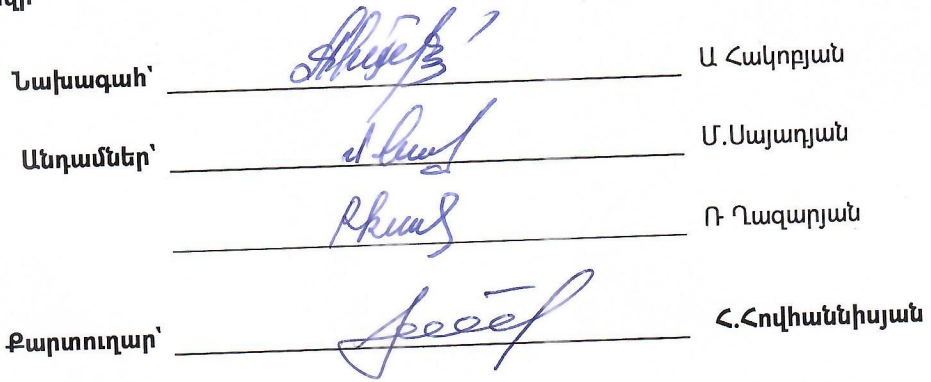 Նախագահ՝ Ա Հակոբյան
Անդամներ՝ Մ.Սայադյան
Ռ Ղազարյան
Քարտուղար՝ Հ.Հովհաննիսյան